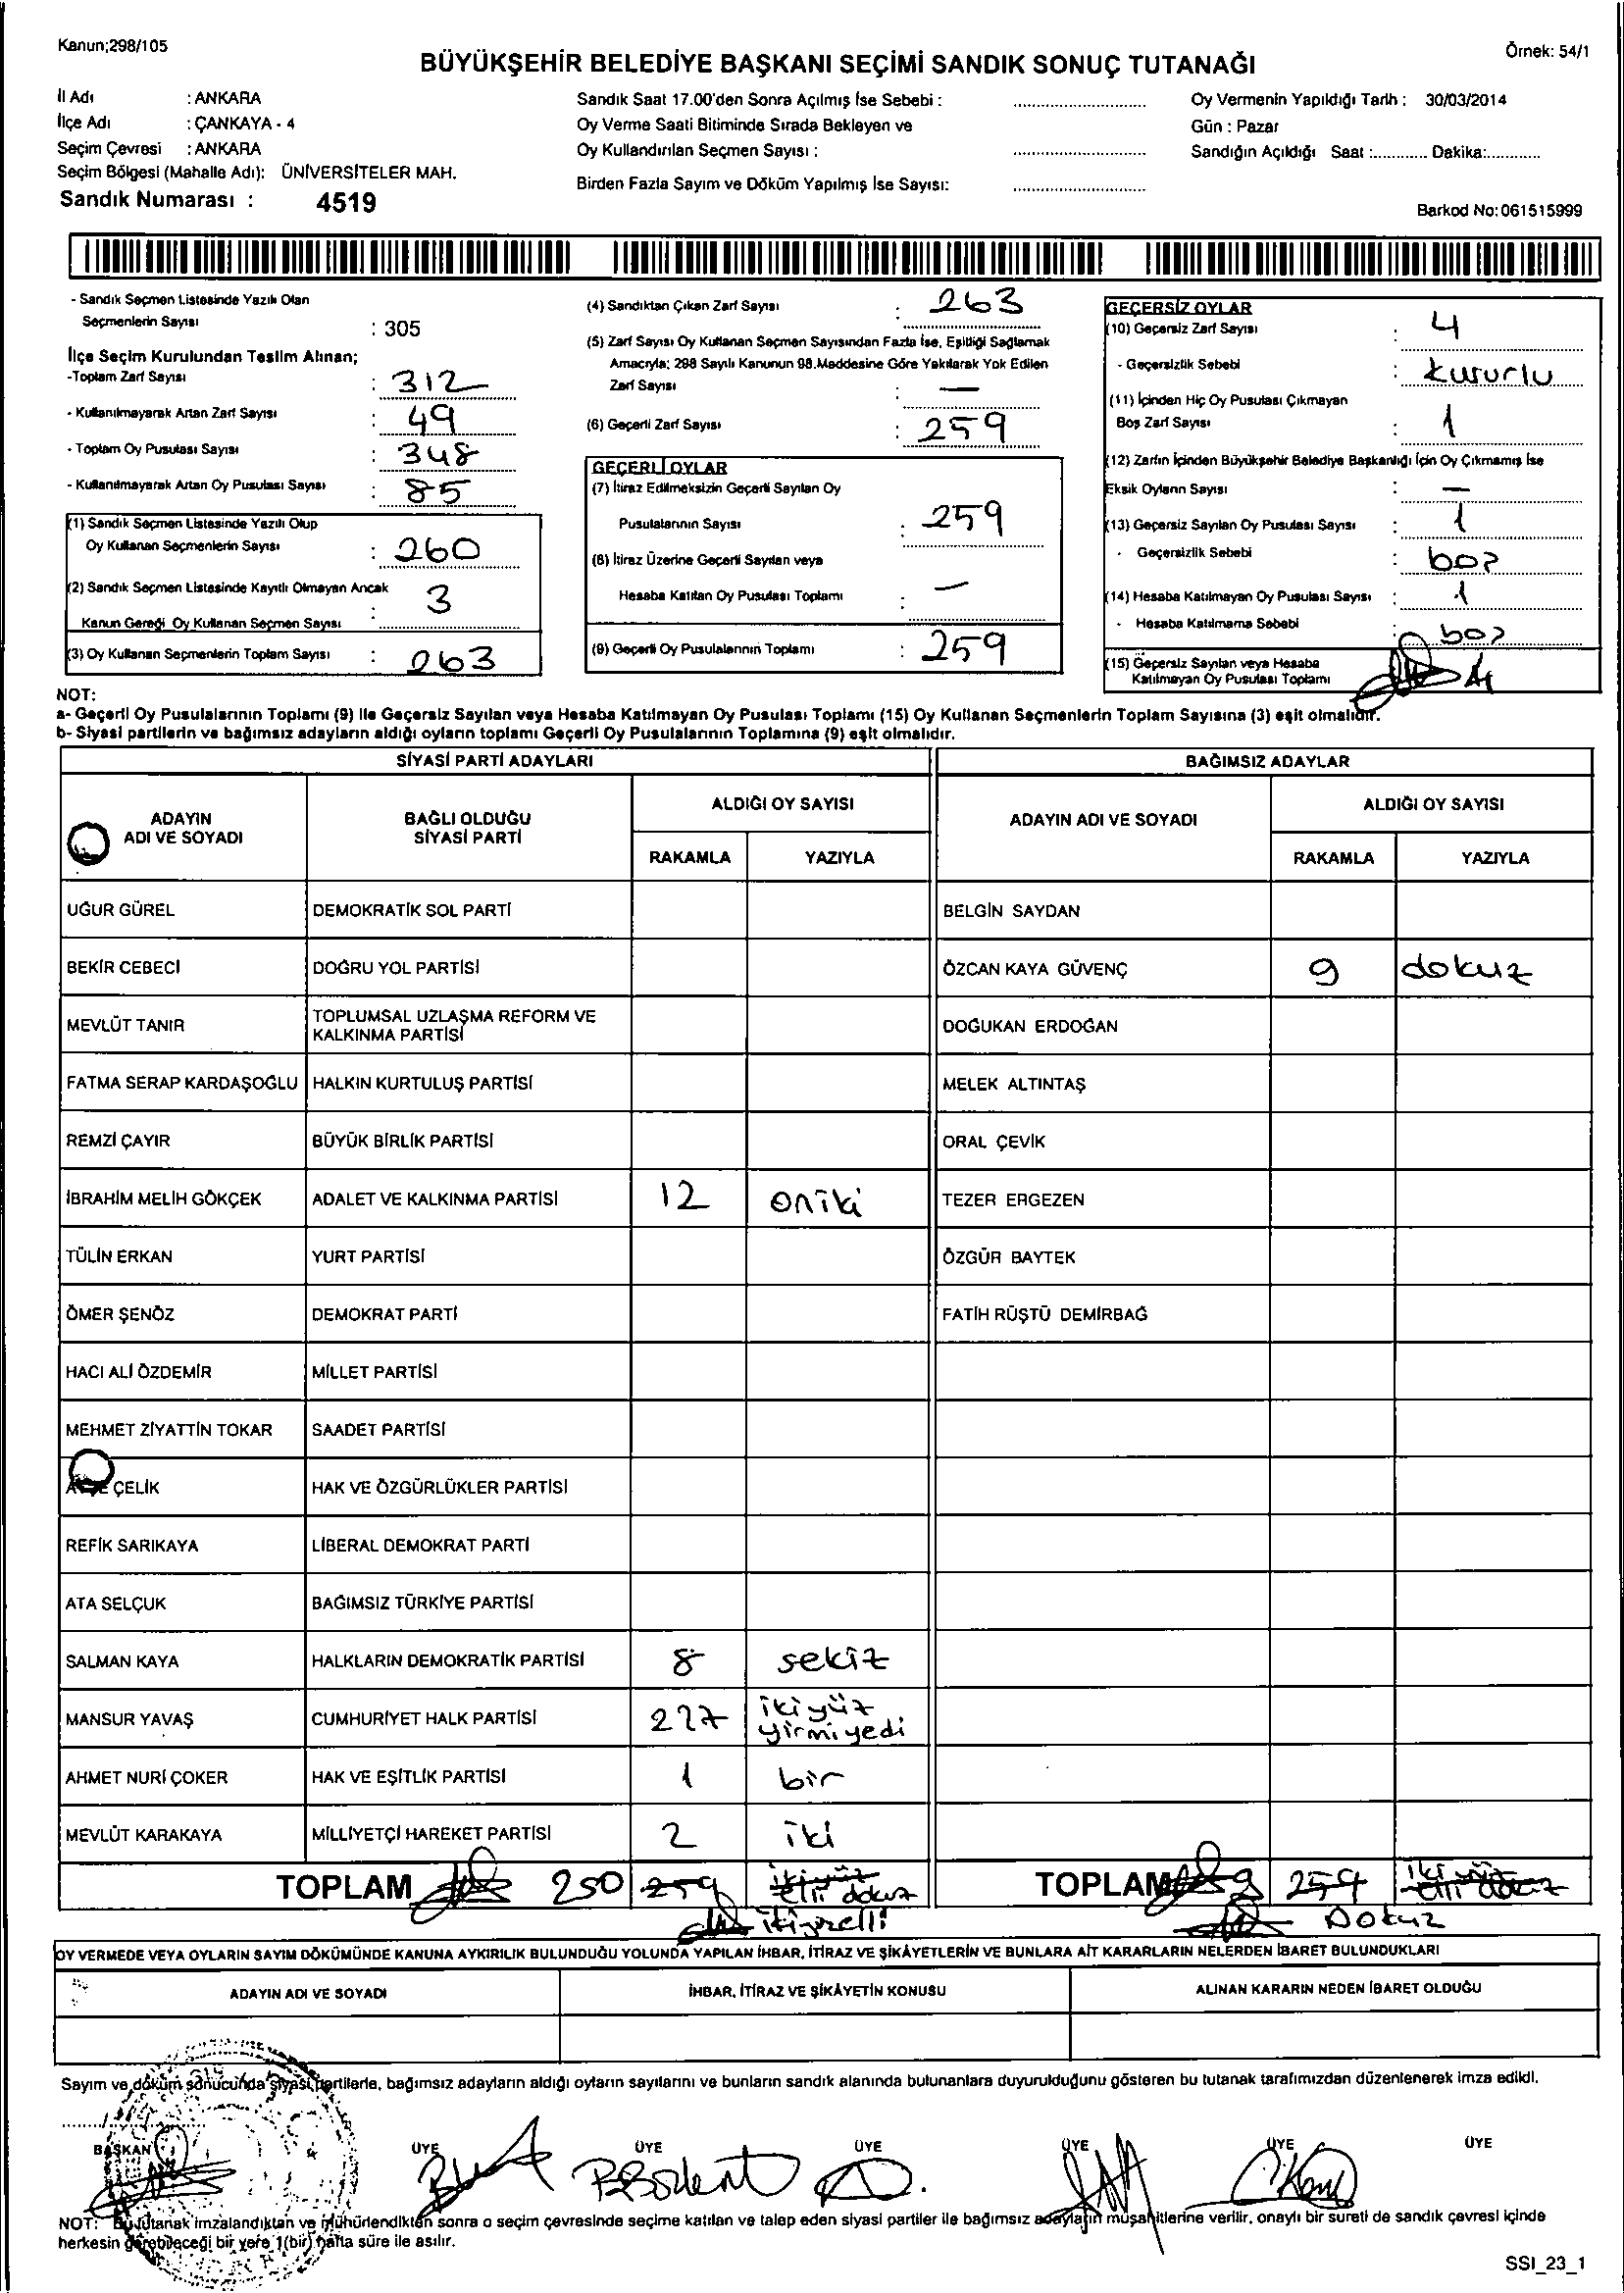 Kanun;298/105
Örnek: 54/1
BÜYÜKŞEHİR BELEDİYE BAŞKANI SEÇİMİ SANDIK SONUÇ TUTANAĞI
İl Adı : ANKARA
İlçe Adı : ÇANKAYA - 4
Seçim Çevresi : ANKARA
Seçim Bölgesi (Mahalle Adı): ÜNİVERSİTELER MAH.
Sandık Numarası : 4519
Sandık Saat 17.00'den Sonra Açılmış İse Sebebi :
Oy Verme Saati Bitiminde Sırada Bekleyen ve
Oy Kullandırılan Seçmen Sayısı :
Birden Fazla Sayım ve Döküm Yapılmış İse Sayısı:
Oy Vermenin Yapıldığı Tarih : 30/03/2014
Gün : Pazar
Sandığın Açıldığı Saat :............ Dakika:............
Barkod No:061515999
- Sandık Seçmen Listesinde Yazılı Olan
Seçmenlerin Sayısı : 305
İlçe Seçim Kurulundan Teslim Alınan;
-Toplam Zarf Sayısı : 312
- Kullanılmayarak Artan Zarf Sayısı : 49
- Toplam Oy Pusulası Sayısı : 348
- Kullanılmayarak Artan Oy Pusulası Sayısı : 85
(1) Sandık Seçmen Listesinde Yazılı Olup
Oy Kullanan Seçmenlerin Sayısı : 260
(2) Sandık Seçmen Listesinde Kayıtlı Olmayan Ancak
Kanun Gereği Oy Kullanan Seçmen Sayısı : 3
(3) Oy Kullanan Seçmenlerin Toplam Sayısı : 263
(4) Sandıktan Çıkan Zarf Sayısı : 263
(5) Zarf Sayısı Oy Kullanan Seçmen Sayısından Fazla İse, Eşitliği Sağlamak
Amacıyla; 298 Sayılı Kanunun 98.Maddesine Göre Yakılarak Yok Edilen
Zarf Sayısı : —
(6) Geçerli Zarf Sayısı : 259
GEÇERLİ OYLAR
(7) İtiraz Edilmeksizin Geçerli Sayılan Oy
Pusulalarının Sayısı : 259
(8) İtiraz Üzerine Geçerli Sayılan veya
Hesaba Katılan Oy Pusulası Toplamı : —
(9) Geçerli Oy Pusulalarının Toplamı : 259
GEÇERSİZ OYLAR
(10) Geçersiz Zarf Sayısı : 4
- Geçersizlik Sebebi : kusurlu
(11) İçinden Hiç Oy Pusulası Çıkmayan
Boş Zarf Sayısı : 1
(12) Zarfın İçinden Büyükşehir Belediye Başkanlığı İçin Oy Çıkmamış İse
Eksik Oyların Sayısı : —
(13) Geçersiz Sayılan Oy Pusulası Sayısı : 1
- Geçersizlik Sebebi : boş
(14) Hesaba Katılmayan Oy Pusulası Sayısı : 1
- Hesaba Katılmama Sebebi : boş
(15) Geçersiz Sayılan veya Hesaba
Katılmayan Oy Pusulası Toplamı 4
NOT:
a- Geçerli Oy Pusulalarının Toplamı (9) ile Geçersiz Sayılan veya Hesaba Katılmayan Oy Pusulası Toplamı (15) Oy Kullanan Seçmenlerin Toplam Sayısına (3) eşit olmalıdır.
b- Siyasi partilerin ve bağımsız adayların aldığı oyların toplamı Geçerli Oy Pusulalarının Toplamına (9) eşit olmalıdır.
SİYASİ PARTİ ADAYLARI BAĞIMSIZ ADAYLAR
ADAYIN
ADI VE SOYADI
BAĞLI OLDUĞU
SİYASİ PARTİ
ALDIĞI OY SAYISI
RAKAMLA YAZIYLA
ADAYIN ADI VE SOYADI
ALDIĞI OY SAYISI
RAKAMLA YAZIYLA
UĞUR GÜREL DEMOKRATİK SOL PARTİ BELGİN SAYDAN
BEKİR CEBECİ DOĞRU YOL PARTİSİ ÖZCAN KAYA GÜVENÇ 9 dokuz
MEVLÜT TANIR TOPLUMSAL UZLAŞMA REFORM VE
KALKINMA PARTİSİ DOĞUKAN ERDOĞAN
FATMA SERAP KARDAŞOĞLU HALKIN KURTULUŞ PARTİSİ MELEK ALTINTAŞ
REMZİ ÇAYIR BÜYÜK BİRLİK PARTİSİ ORAL ÇEVİK
İBRAHİM MELİH GÖKÇEK ADALET VE KALKINMA PARTİSİ 12 oniki TEZER ERGEZEN
TÜLİN ERKAN YURT PARTİSİ ÖZGÜR BAYTEK
ÖMER ŞENÖZ DEMOKRAT PARTİ FATİH RÜŞTÜ DEMİRBAĞ
HACI ALİ ÖZDEMİR MİLLET PARTİSİ
MEHMET ZİYATTİN TOKAR SAADET PARTİSİ
ÇELİK HAK VE ÖZGÜRLÜKLER PARTİSİ
REFİK SARIKAYA LİBERAL DEMOKRAT PARTİ
ATA SELÇUK BAĞIMSIZ TÜRKİYE PARTİSİ
SALMAN KAYA HALKLARIN DEMOKRATİK PARTİSİ 8 sekiz
MANSUR YAVAŞ CUMHURİYET HALK PARTİSİ 227 ikiyüz
yirmiyedi
AHMET NURİ ÇOKER HAK VE EŞİTLİK PARTİSİ 1 bir
MEVLÜT KARAKAYA MİLLİYETÇİ HAREKET PARTİSİ 2 iki
TOPLAM 250 259 ikiyüz elli dokuz TOPLAM 9 259 ikiyüz elli dokuz
ikiyüzelli Dokuz
OY VERMEDE VEYA OYLARIN SAYIM DÖKÜMÜNDE KANUNA AYKIRILIK BULUNDUĞU YOLUNDA YAPILAN İHBAR, İTİRAZ VE ŞİKÂYETLERİN VE BUNLARA AİT KARARLARIN NELERDEN İBARET BULUNDUKLARI
ADAYIN ADI VE SOYADI İHBAR, İTİRAZ VE ŞİKÂYETİN KONUSU ALINAN KARARIN NEDEN İBARET OLDUĞU
Sayım ve döküm sonucunda siyasi partilerle, bağımsız adayların aldığı oyların sayılarını ve bunların sandık alanında bulunanlara duyurulduğunu gösteren bu tutanak tarafımızdan düzenlenerek imza edildi.
BAŞKAN ÜYE ÜYE ÜYE ÜYE ÜYE ÜYE
NOT: Bu tutanak imzalandıktan ve mühürlendikten sonra o seçim çevresinde seçime katılan ve talep eden siyasi partiler ile bağımsız adayların müşahitlerine verilir, onaylı bir sureti de sandık çevresi içinde
herkesin görebileceği bir yere 1(bir) hafta süre ile asılır.
SSI_23_1